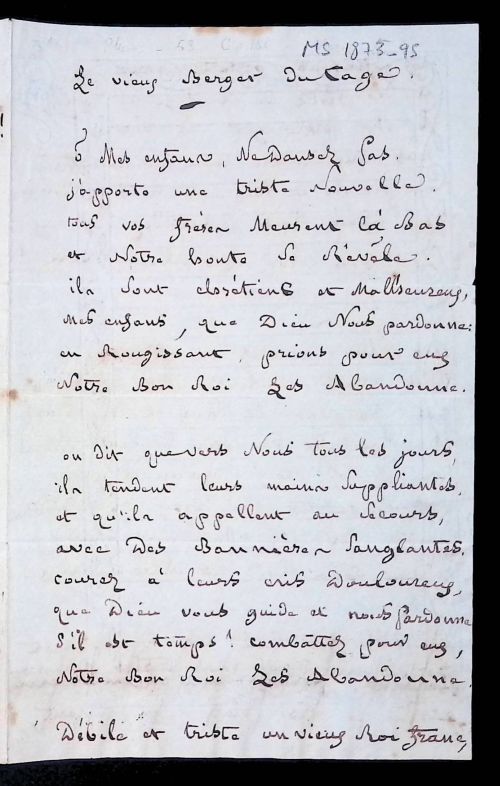 MS 1873-95
Le vieux Berger du Tage.
ô Mes enfans, Ne Dansez Pas.
j'apporte une triste Nouvelle.
tous vos frères Meurent là Bas
et Notre honte Se Révèle.
ils Sont chrétiens et Malheureux,
Mes enfans, que Dieu Nous pardonne:
en Rougissant, prions pour eux
Notre Bon Roi Les Abandonne.
on dit que vers Nous tous les jours,
ils tendent leurs mains Suppliantes,
et qu'ils appellent au Secours,
avec Des Bannières Sanglantes.
courez à leurs cris Douloureux,
que Dieu vous guide et nous pardonne
S'il est temps! combattez pour eux,
Notre Bon Roi Les Abandonne.
Débile et triste un vieux Roi franc,